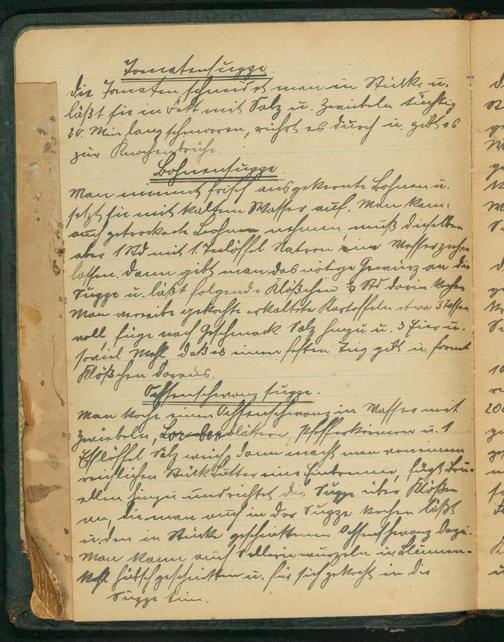 Tomatensuppe.
die Tomaten schneidet man in Stücke u.
läßt sie in Fett mit Salz u. Zwiebeln tüchtig
20. Min lang schmorren, rührt es durch u. gibt es
zur Knochenbrühe.
Bohnensuppe
Man nimmt frisch ausgekernte Bohnen u.
setzt sie mit kaltem Wasser auf. Man kann
auch getrocknete Bohnen nehmen, muß dieselben
aber 1 Std mit 1. Teelöffel Natron im Wasser ziehen
lassen. Dann gibt man das nötige Gewürz an die
Suppe u. läßt folgende Klößchen ½ Std darin kochen
Man verreibe gekochte erkaltete Kartoffeln etwa 3 Tassen
voll, füge nach Geschmack Salz hinzu u. 3 Eier u.
soviel Mehl daß es einen festen Teig gibt u. formt
Klößchen daraus.
Ochsenschwanz suppe.
Man koche einen Ochsenschwanz in Wasser mit
Zwiebeln, Lor blättern, Pfefferkörnern u. 1
Eßlöffel Salz weich, dann macht man von einem
reichlichen Stück Butter eine Einbrenne, fügt
hinzu und richtet die Suppe über Klößen
an, die man auch in der Suppe kochen läßt
u. den in Stücke geschnittenen Ochsenschwanz dazu.
Man kann auch Selleriewurzeln in
hübsch geschnitten u. für sich gekocht in die
Suppe tun.